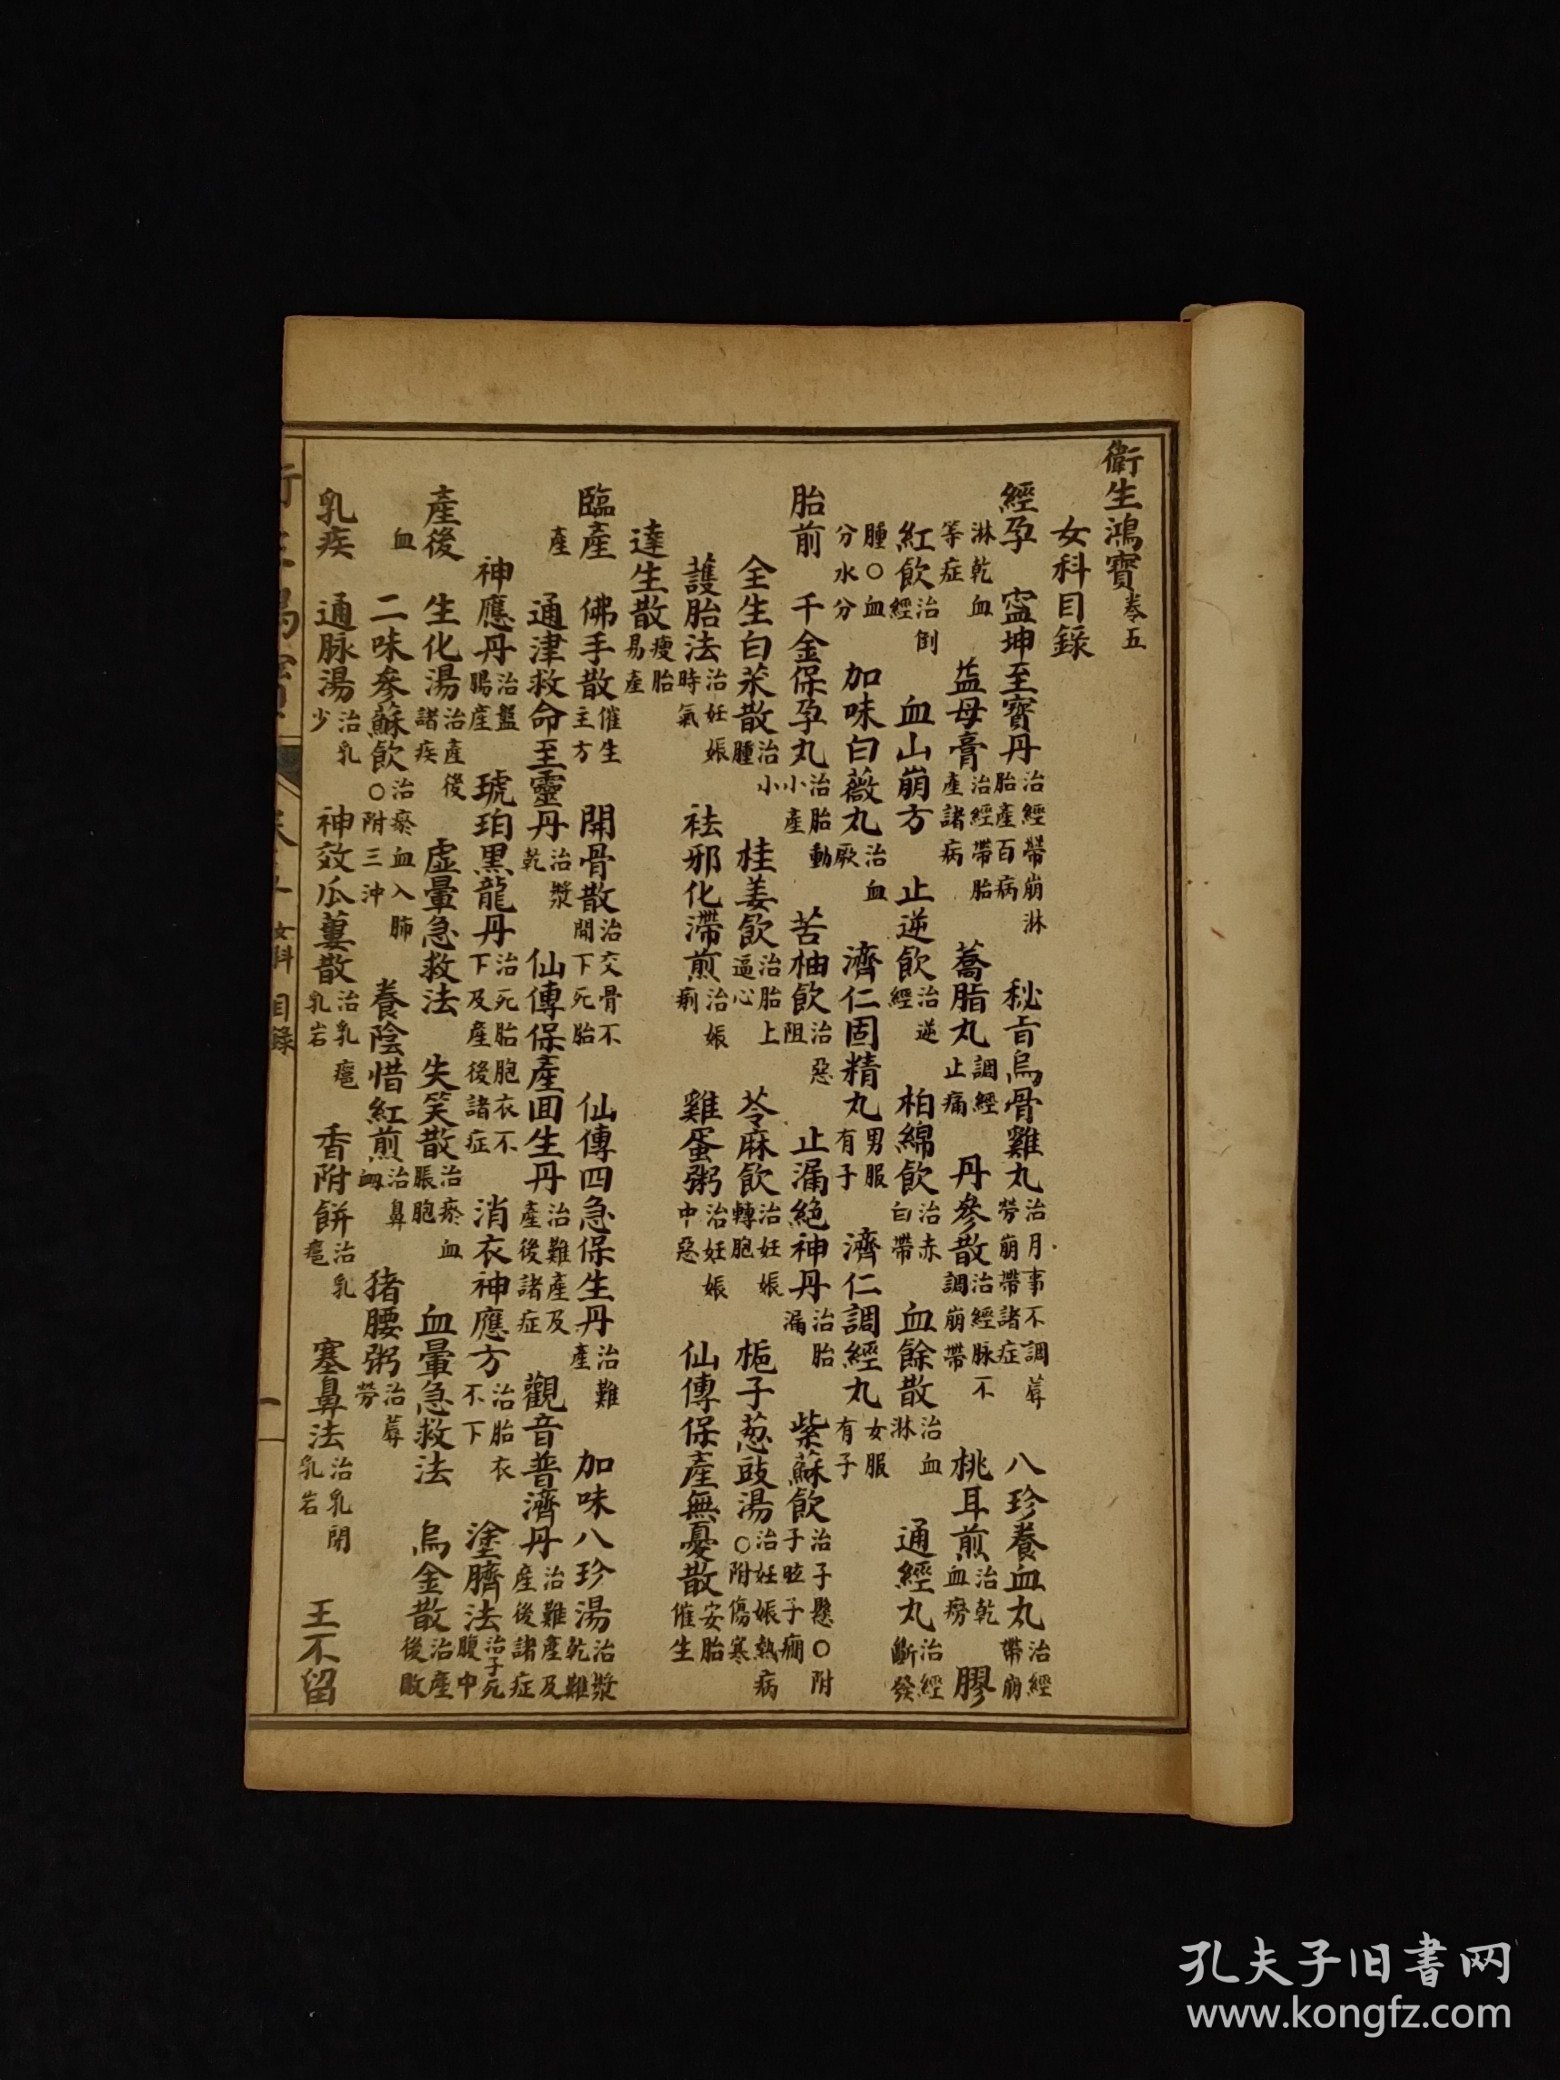 衛生鴻寶卷五
女科目錄
經孕　寍坤至寶丹治經帶崩淋胎產百病　秘旨烏骨雞丸治月事不調蓐勞崩帶諸症　八珍養血丸治經帶崩
淋乾血等症　益母膏治經帶胎產諸病　蠤脂丸調經止痛　丹參散治經脉不調崩帶　桃耳煎治乾血癆　膠
紅飲治倒經　血山崩方　止逆飲治逆經　柏綿飲治赤白帶　血餘散治血淋　通經丸治經斷發
腫○血分水分　加味白薇丸治血厥　濟仁固精丸男服有子　濟仁調經丸女服有子
胎前　千金保孕丸治胎動小產　苦柚飲治惡阻　止漏絕神丹治胎漏　紫蘇飲治子懸○附子眩子癎
全生白朮散治小腫　桂姜飲治胎上逼心　苓麻飲治妊娠轉胞　梔子葱豉湯治妊娠熱病○附傷寒
護胎法治妊娠時氣　祛邪化滯煎治娠痢　雞蛋粥治妊娠中惡　仙傳保產無憂散安胎催生
達生散瘦胎易產
臨產　佛手散催生主方　開骨散治交骨不開下死胎　仙傳四急保生丹治難產　加味八珍湯治漿乾難
產　通津救命至靈丹治漿乾　仙傳保產回生丹治難產及產後諸症　觀音普濟丹治難產及產後諸症
神應丹治盤腸產　琥珀黑龍丹治死胎胞衣不下及產後諸症　消衣神應方治胎衣不下　塗臍法治子死腹中
產後　生化湯治產後諸疾　虛暈急救法　失笑散治瘀血脹胞　血暈急救法　烏金散治產後敗
血　二味參蘇飲治瘀血入肺○附三沖　養陰惜紅煎治鼻衂　猪腰粥治蓐勞
乳疾　通脉湯治乳少　神效瓜蔞散治乳癰乳岩　香附餅治乳癰　塞鼻法治乳閉乳岩　王不留
女科　目錄
一
孔夫子旧书网
www.kongfz.com